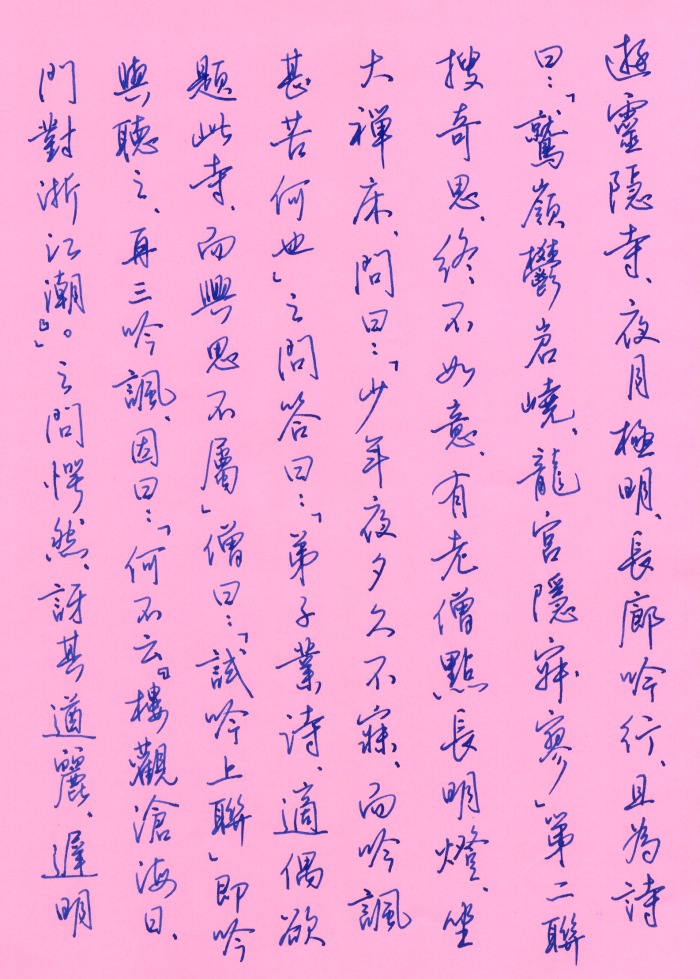 遊靈隱寺、夜月極明、長廊吟行、且為詩
曰:「鷲嶺鬱岧嶢、龍宮隱寂寥」第二聯
搜奇思、終不如意、有老僧點長明燈、坐
大禪床、問曰:「少年夜夕久不寐、而吟諷
甚苦何也」之問答曰:「弟子業詩、適偶欲
題此寺、而興思不屬」僧曰:「試吟上聯」即吟
與聽之、再三吟諷、因曰:「何不云『樓觀滄海日、
門對浙江潮』。之問愕然、訝其遒麗、遲明